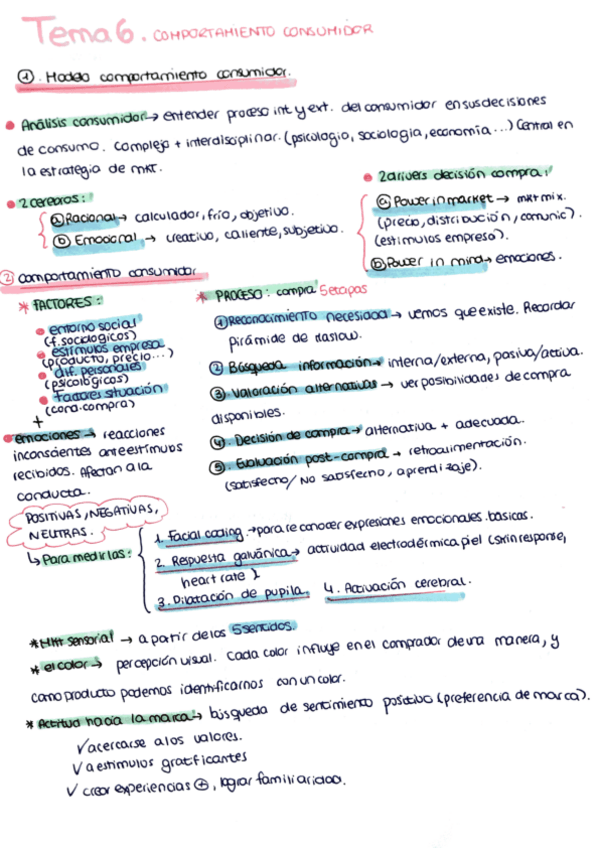 Tema 6. COMPORTAMIENTO CONSUMIDOR
① . Modelo comportamiento consumidor.
• Análisis consumidor → entender proceso int y ext. del consumidor en sus decisiones
de consumo. Complejo + interdisciplinar. (psicología, sociología, economía...) Central en
la estrategia de MKT.
• 2 cerebros:
ⓐ Racional → calculador, frío, objetivo.
ⓑ Emocional → creativo, caliente, subjetivo.
• 2 drivers decisión compra:
ⓐ Power in market → mkt mix.
(precio, distribución, comunic).
(estímulos empresa).
ⓑ Power in mind → emociones.
② comportamiento consumidor
* FACTORES:
• entorno social
(f. sociológicos)
• estímulos empresa
(producto, precio...)
• dif. personales
(psicológicos)
• Factores situación
(cara. compra)
+
• emociones → reacciones
inconscientes ante estímulos
recibidos. Afectan a la
conducta.
POSITIVAS, NEGATIVAS,
NEUTRAS.
* PROCESO: compra 5 etapas
① Reconocimiento necesidad → vemos que existe. Recordar
pirámide de Maslow.
② Búsqueda información → interna/externa, pasiva/activa.
③ Valoración alternativas → ver posibilidades de compra
disponibles.
④ . Decisión de compra → alternativa + adecuada.
⑤ . Evaluación post-compra → retroalimentación.
(satisfecho/ No satisfecho, aprendizaje).
↳ Para medirlas:
1. Facial coding. → para reconocer expresiones emocionales básicas.
2. Respuesta galvánica → actividad electrodérmica piel (skin response,
heart rate)
3. Dilatación de pupila. 4. Activación cerebral.
* Mkt sensorial → a partir de los 5 sentidos.
* el color → percepción visual. Cada color influye en el comprador de una manera, y
como producto podemos identificarnos con un color.
* Actitud hacia la marca → búsqueda de sentimiento positivo (preferencia de marca).
✓ acercarse a los valores.
✓ a estímulos gratificantes
✓ crear experiencias ⊕, lograr familiaridad.